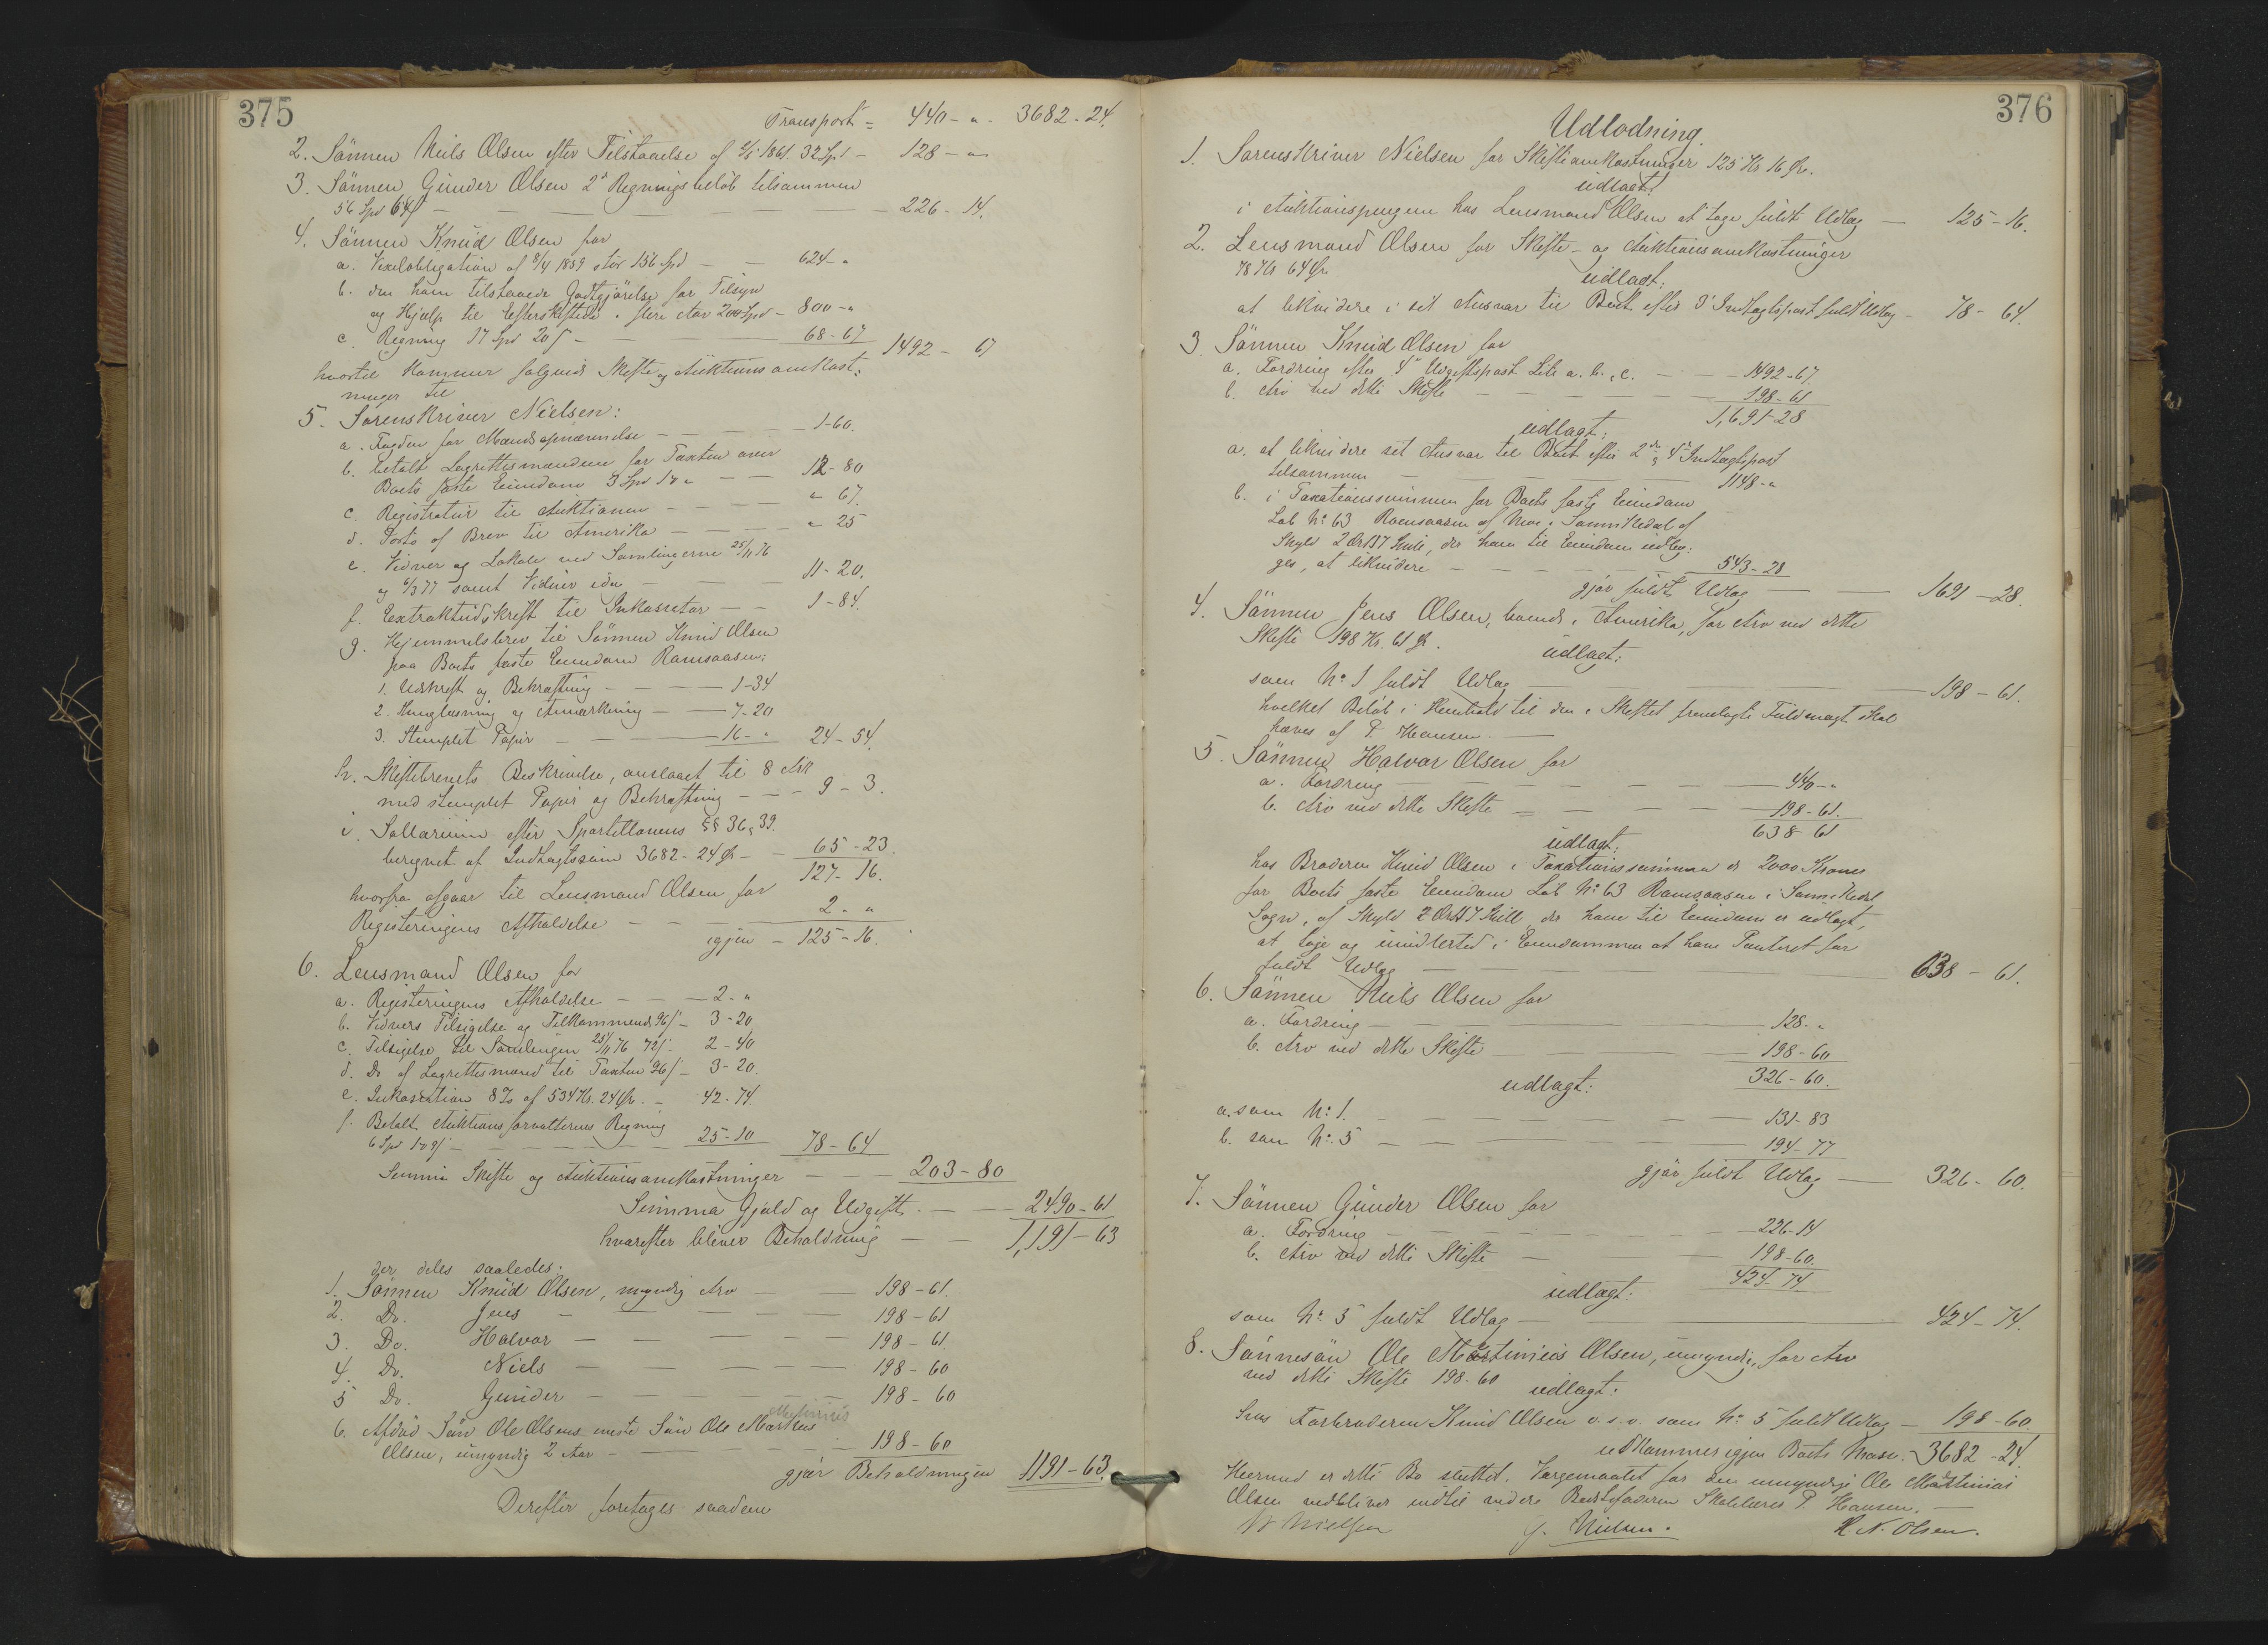 375
Transport = 440 - " - 3682 - 24.
2. Sönnen Niels Olsen efter Tilstaaelse af 1861. 32 Sp. - 128 - "
3. Sönnen Gunder Olsen 2de Regningsbeløb tilsammen
56 Spd 64 β - 226 - 14.
4. Sönnen Knud Olsen for
a. Vexelobligation af 8/4 1859 stor 156 Spd - 624 - "
b. den ham tilstaaede Godtgjörelse for Tilsyn
og Hjælp til Efterskiftede i flere Aar 200 Spd - 800 - "
c. Regning 17 Spd 20 β - 68 - 67 1492 - 67
hvortil kommer følgende Skifte og Auktionsomkost-
ninger til
5. Sorenskriver Nielsen:
a. Fogden for Mændsopnævnelse - 1-60.
b. betalt Lagrettesmændene for Taxten over
Boets faste Eiendom 3 Spd - 12-80
c. Registratur til Auktionen - " 67.
d. Porto af Brev til Amerika - " 25
e. Vidner og Lokale ved Samlingerne 25/11 76
og 6/3 77 samt Vidner - 11-20.
f. Extraktudskrift til Inkassator - 1-84.
g. Hjemmelsbrev til Sönnen Knud Olsen
paa Boets faste Eiendom Ramsaasen:
1. Udskrift og Bekræftning - 1-34
2. Thinglæsning og Anmærkning - 7-20
3. Stemplet Papir - 16 - " 24-54.
h. Skiftebrevets Beskrivelse, anslaaet til 8 Ark
med stemplet Papir og Bekræftning - 9 - 3.
i. Sallarium efter Sportellovens §§ 36 & 39.
beregnet af Indtægtssum 3682-24 Øre - 65-23.
127-16.
hvorfra afgaar til Lensmand Olsen for
Registreringens Afholdelse - 2 - "
igjen - 125-16.
6. Lensmand Olsen for
a. Registeringens Afholdelse - 2 - "
b. Vidners Tilsigelse og Tilkommende 96 β - 3-20
c. Tilsigelse til Samlingen 25/11 76 72 β 2-40
d. Do af Lagrettesmænd til Taxten 96 β - 3-20.
e. Inkassation 8 % af 534 Kr. 24 Øre. - 42-74.
f. Betalt Auktionsforvalterens Regning
6 Spd 109 β - 25-10 78-64
Summa Skifte og Auktionsomkostninger - 203-80
Summa Gjæld og Udgift - 2490-61
hvorefter bliver Beholdning - 1,191-63
der deles saaledes:
1. Sönnen Knud Olsen, myndig Arv - 198-61.
2. Do. Jens - 198-61
3. Do. Halvor - 198-61.
4. Do. Niels - 198-60
5 Do. Gunder - 198-60
Mathinius
6. Afdød Sön Ole Olsens eneste Sön Ole Markus
Olsen, umyndig 2 Aar - 198-60
gjör Beholdningen 1191-63.
Derefter foretages saadan
376
Udlodning.
1. Sorenskriver Nielsen for Skifteomkostninger 125 Kr 16 Øre.
udlagt:
i Auktionspengene hos Lensmand Olsen at tage fuldt Udlæg - 125-16.
2. Lensmand Olsen for Skifte- og Auktionsomkostninger
78 Kr 64 Øre
udlagt:
at likvidere i sit Ansvar til Boet efter 3die Indtægtspost fuldt Udlæg - 78-64.
3. Sönnen Knud Olsen for
a. Fordring efter 4de Udgiftspost Litr a. b. c. - 1492-67.
b. Arv ved dette Skifte - 198-61
1,691-28
udlagt:
a. at likvidere sit Ansvar til Boet efter 2den & 4de Indtægtspost
tilsammen - 1148 - "
b. i Taxationssummen for Boets faste Eiendom
Løb No 63 Ramsaasen af i Sannikedal af
Skyld 2 Ort 17 Skill, der ham til Eiendom udlæg-
ges, at likvidere - 543-28
gjör fuldt Udlæg - 1691-28.
4. Sönnen Jens Olsen, boende i Amerika, for Arv ved dette
Skifte 198 Kr. 61 Øre.
udlagt:
som No 1 fuldt Udlæg - 198-61.
hvilket Beløb i Henhold til den i Skiftet fremlagte Fuldmagt skal
hæves af P. Hansen. -
5. Sönnen Halvor Olsen for
a. Fordring - 440 - "
b. Arv ved dette Skifte - 198-61.
638-61
udlagt:
hos Broderen Knud Olsen i Taxationssummen 2000 Kroner
for Boets faste Eiendom Løb No 63 Ramsaasen i Sannikedal
Sogn, af Skyld 2 Ort 17 Skill der ham til Eiendom er udlagt,
at tage og imidlertid i Eiendommen at have Panteret for
fuldt Udlæg - 638-61.
6. Sönnen Niels Olsen for
a. Fordring - 128 - "
b. Arv ved dette Skifte - 198-60
326-60.
udlagt:
a. som No 1. - 131-83
b. som No. 5 - 194-77
gjör fuldt Udlæg - 326-60.
7. Sönnen Gunder Olsen for
a. Fordring - 226-14
b. Arv ved dette Skifte - 198-60.
424-74.
udlagt:
som No 5 fuldt Udlæg - 424-74.
8. Sönnesön Ole Mathinius Olsen, umyndig, for Arv
ved dette Skifte 198-60
udlagt:
hos Farbroderen Knud Olsen o. s. v. som No 5 fuldt Udlæg - 198-60.
udkommer igjen Boets Masse - 3682-24.
Hermed er dette Bo sluttet. Værgemaalet for den umyndige Ole Mathinius
Olsen vedbliver indtil videre Bedstefaderen Skolelærer P. Hansen. -
Nielsen
G. Nielsen.
H. N. Olsen.